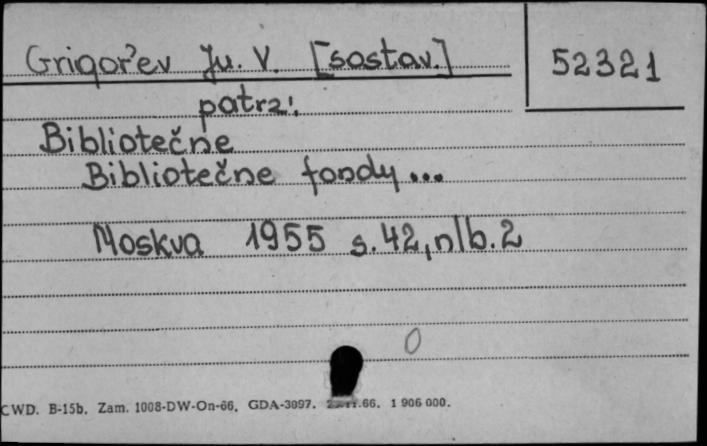 Grigor'ev Ju. V. [sostav.]
52321
patrz:
Bibliotečne
Bibliotečne fondy...
Moskva 1955 s. 42, nlb. 2
0
CWD. B-15b. Zam. 1008-DW-On-66. GDA-3097. .66. 1 906 000.